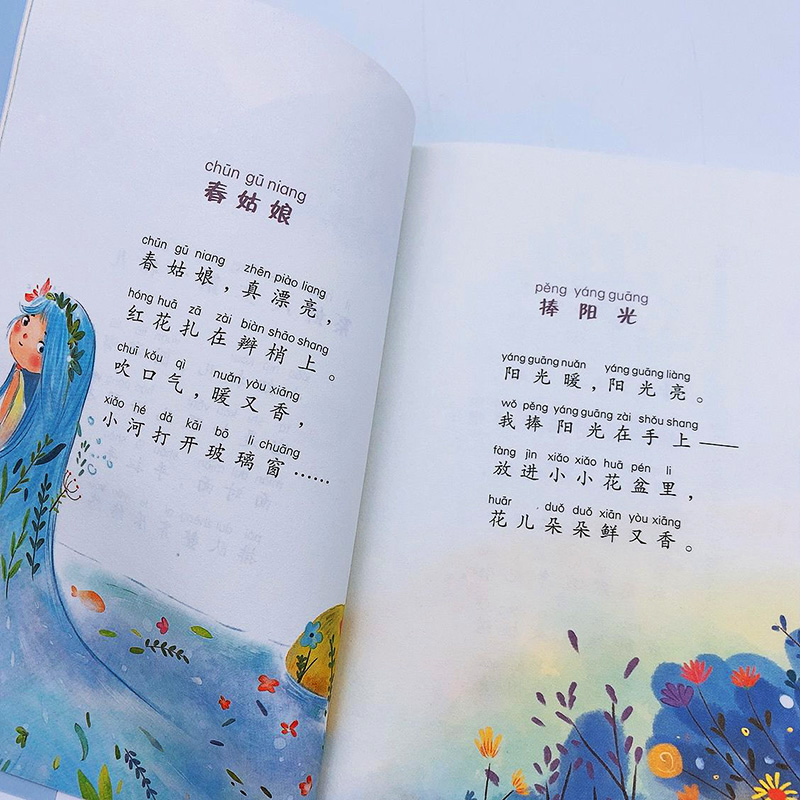 chūn gū niang
春姑娘
chūn gū niang zhēn piào liang
春姑娘，真漂亮，
hóng huā zā zài biàn shāo shang
红花扎在辫梢上。
chuī kǒu qì nuǎn yòu xiāng
吹口气，暖又香，
xiǎo hé dǎ kāi bō li chuāng
小河打开玻璃窗……
pěng yáng guāng
捧阳光
yáng guāng nuǎn yáng guāng liàng
阳光暖，阳光亮。
wǒ pěng yáng guāng zài shǒu shang
我捧阳光在手上——
fàng jìn xiǎo xiǎo huā pén li
放进小小花盆里，
huār duǒ duǒ xiān yòu xiāng
花儿朵朵鲜又香。